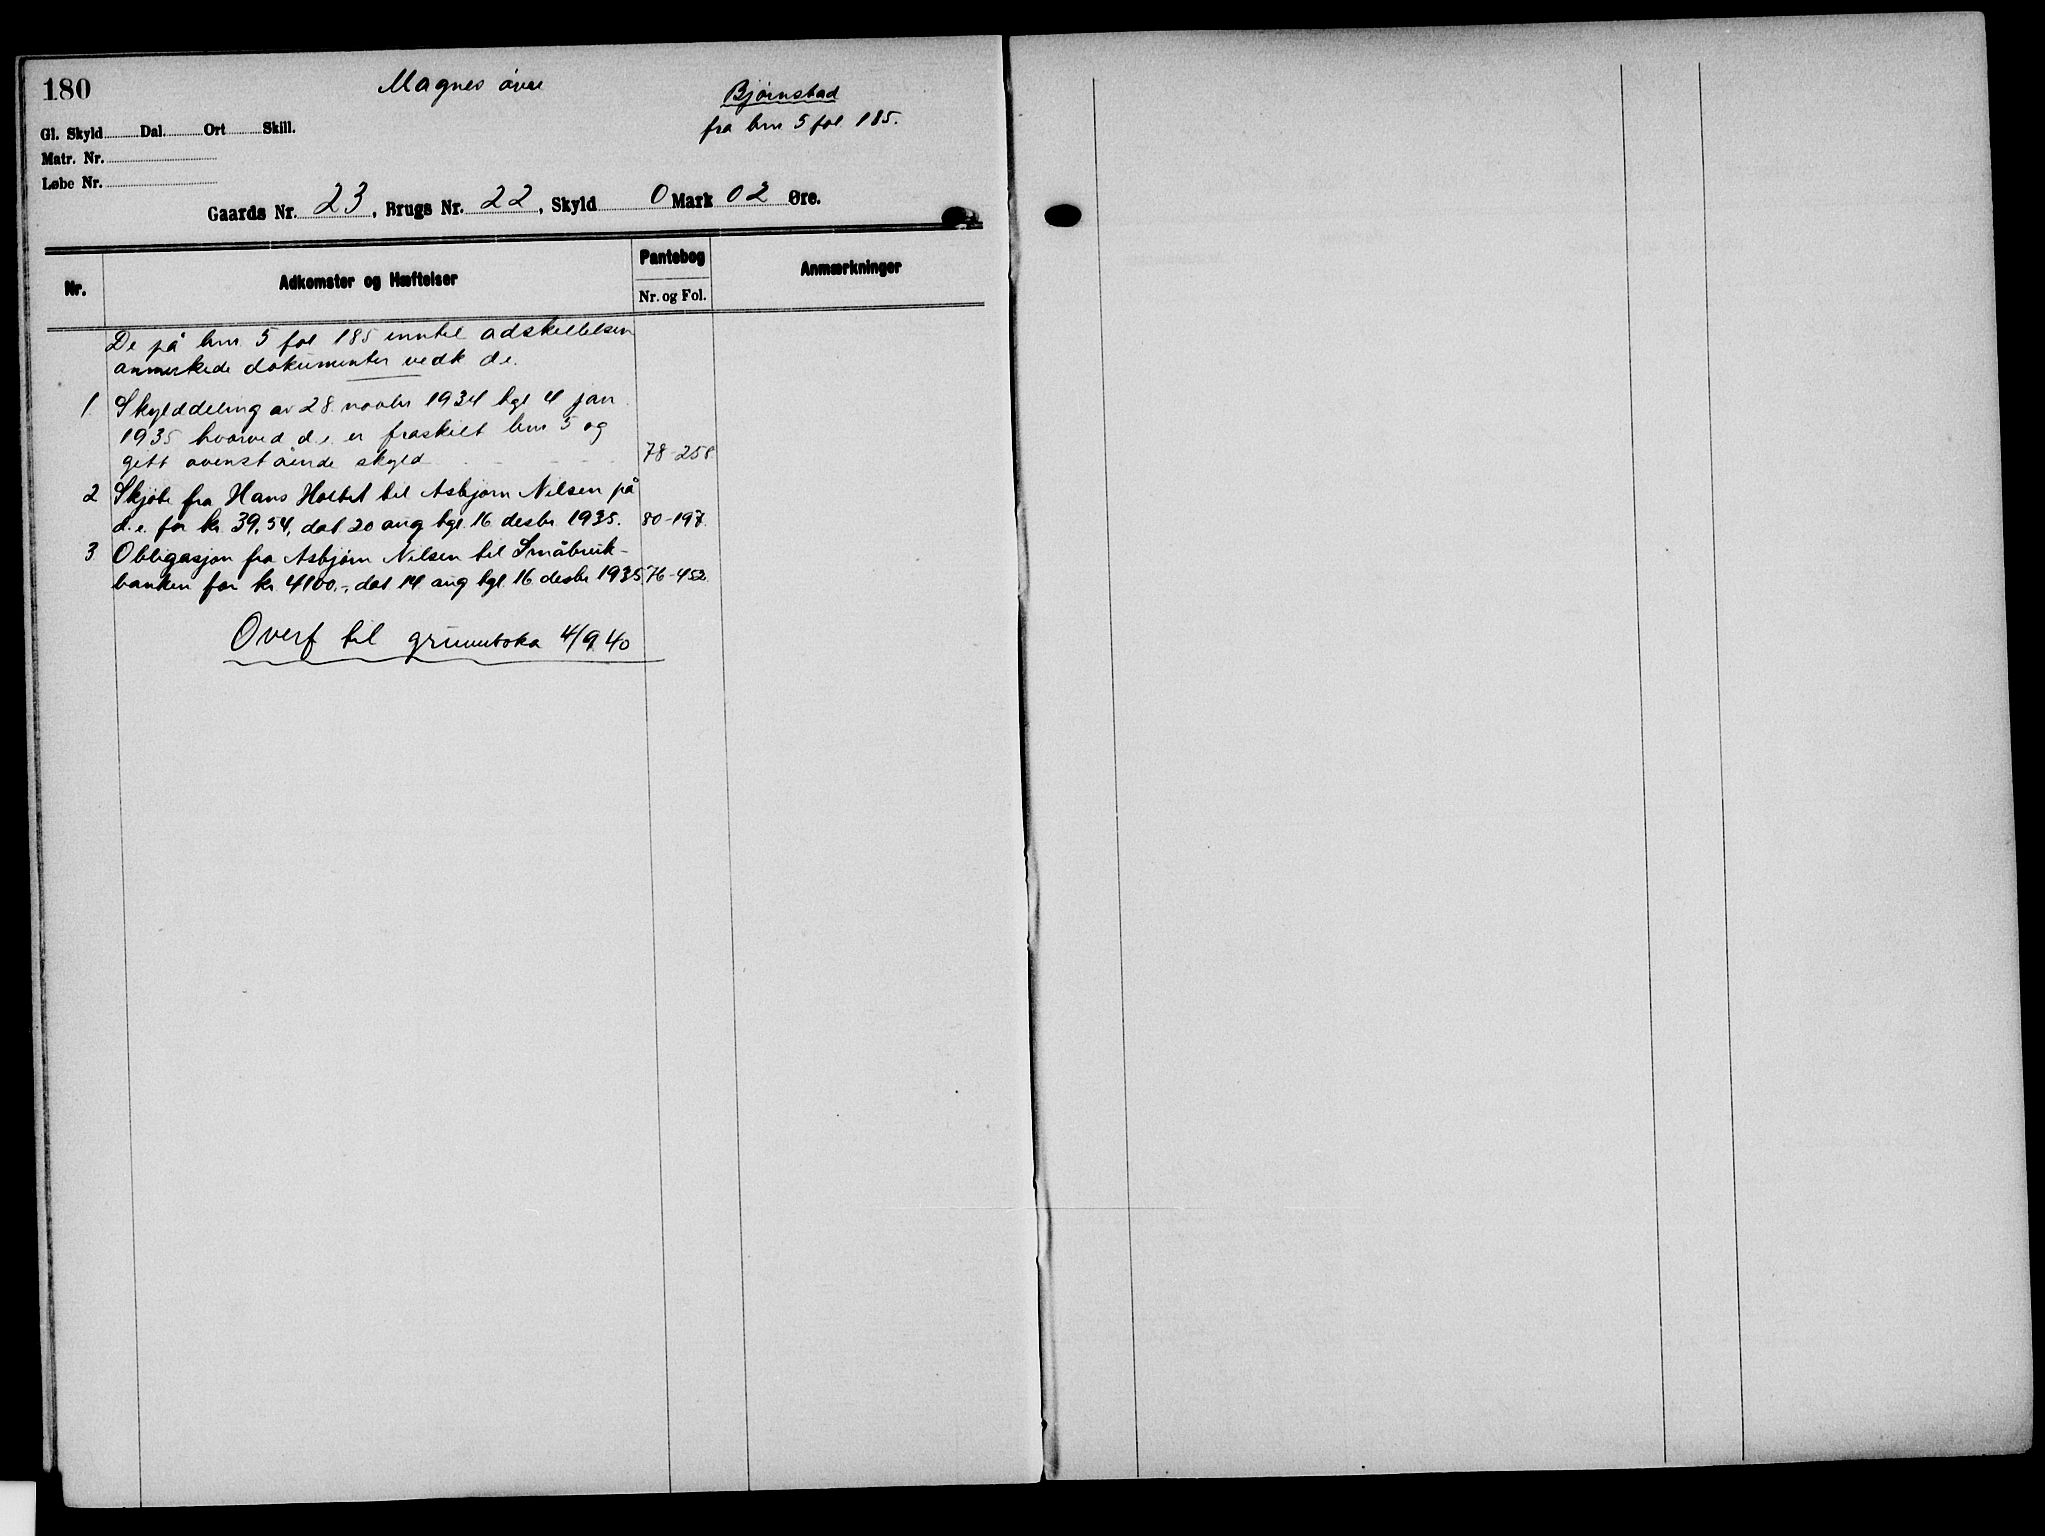 180
Magnes øvre
Bjørnstad
fra bnr 5 fol. 185.
Gl. Skyld Dal. Ort Skill.
Matr. Nr.
Løbe Nr.
Gaards Nr. 23, Brugs Nr. 22, Skyld 0 Mark 02 Øre.
Nr. Adkomster og Hæftelser Pantebog Nr. og Fol. Anmærkninger
De på bnr 5 fol 185 inntil adskillelsen
anmerkede dokumenter vedk d.e.
1 Skylddeling av 28. novbr 1934 tgl 4 jan
1935 hvorved d.e. er fraskilt bnr 5 og
gitt ovenstående skyld 78-258
2 Skjøte fra Hans Holtet til Asbjørn Nilsen på
d.e. for kr. 39,54, dat 20 aug tgl. 16 desbr. 1935. 80-197.
3 Obligasjon fra Asbjørn Nilsen til Småbruk-
banken for kr. 4100.-, dat 14 aug tgl. 16 desbr 1935 76-452
Overf til grunnboka 4/9 40